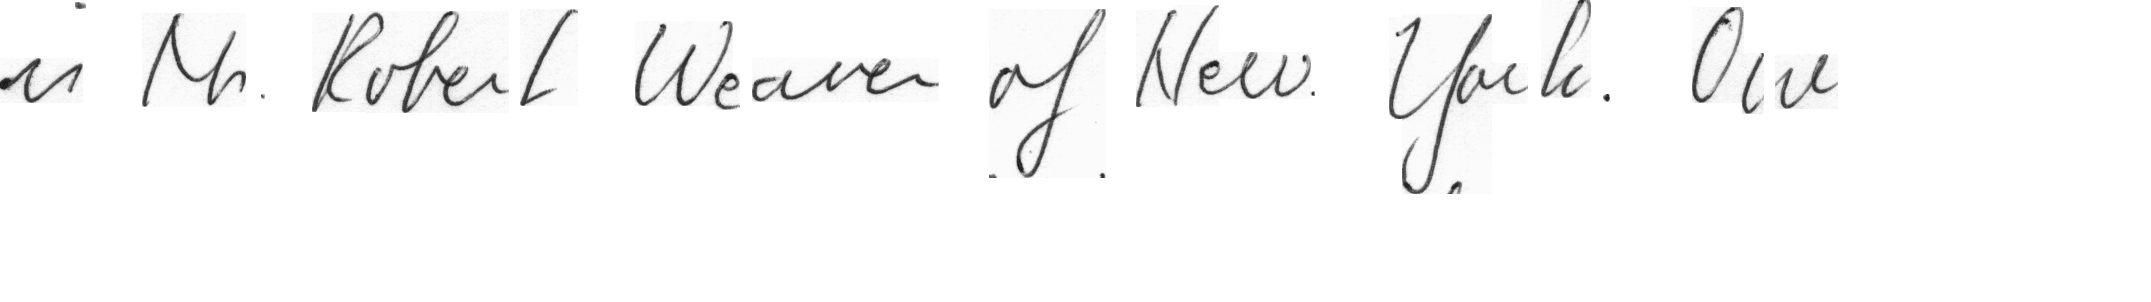 is Mr. Robert Weaver of New York. One